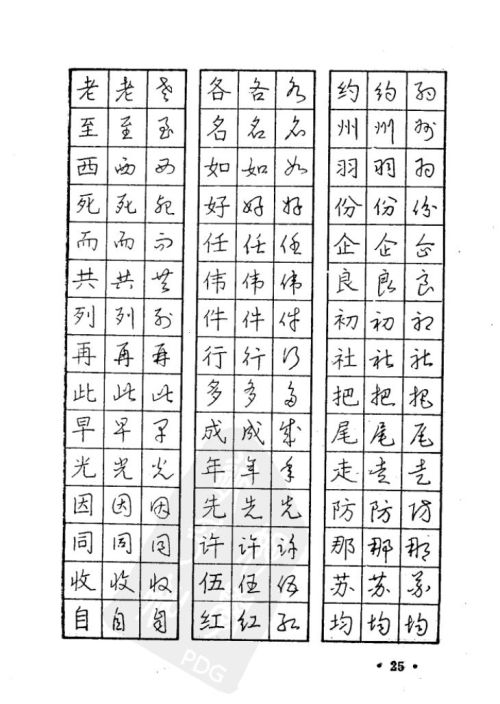 老 老 老 各 各 各 约 约 约
至 至 至 名 名 名 州 州 州
西 西 西 如 如 如 羽 羽 羽
死 死 死 好 好 好 份 份 份
而 而 而 任 任 任 企 企 企
共 共 共 伟 伟 伟 良 良 良
列 列 列 件 件 件 初 初 初
再 再 再 行 行 行 社 社 社
此 此 此 多 多 多 把 把 把
早 早 早 成 成 成 尾 尾 尾
光 光 光 年 年 年 走 走 走
因 因 因 先 先 先 防 防 防
同 同 同 许 许 许 那 那 那
收 收 收 伍 伍 伍 苏 苏 苏
自 自 自 红 红 红 均 均 均
• 25 •
PDG